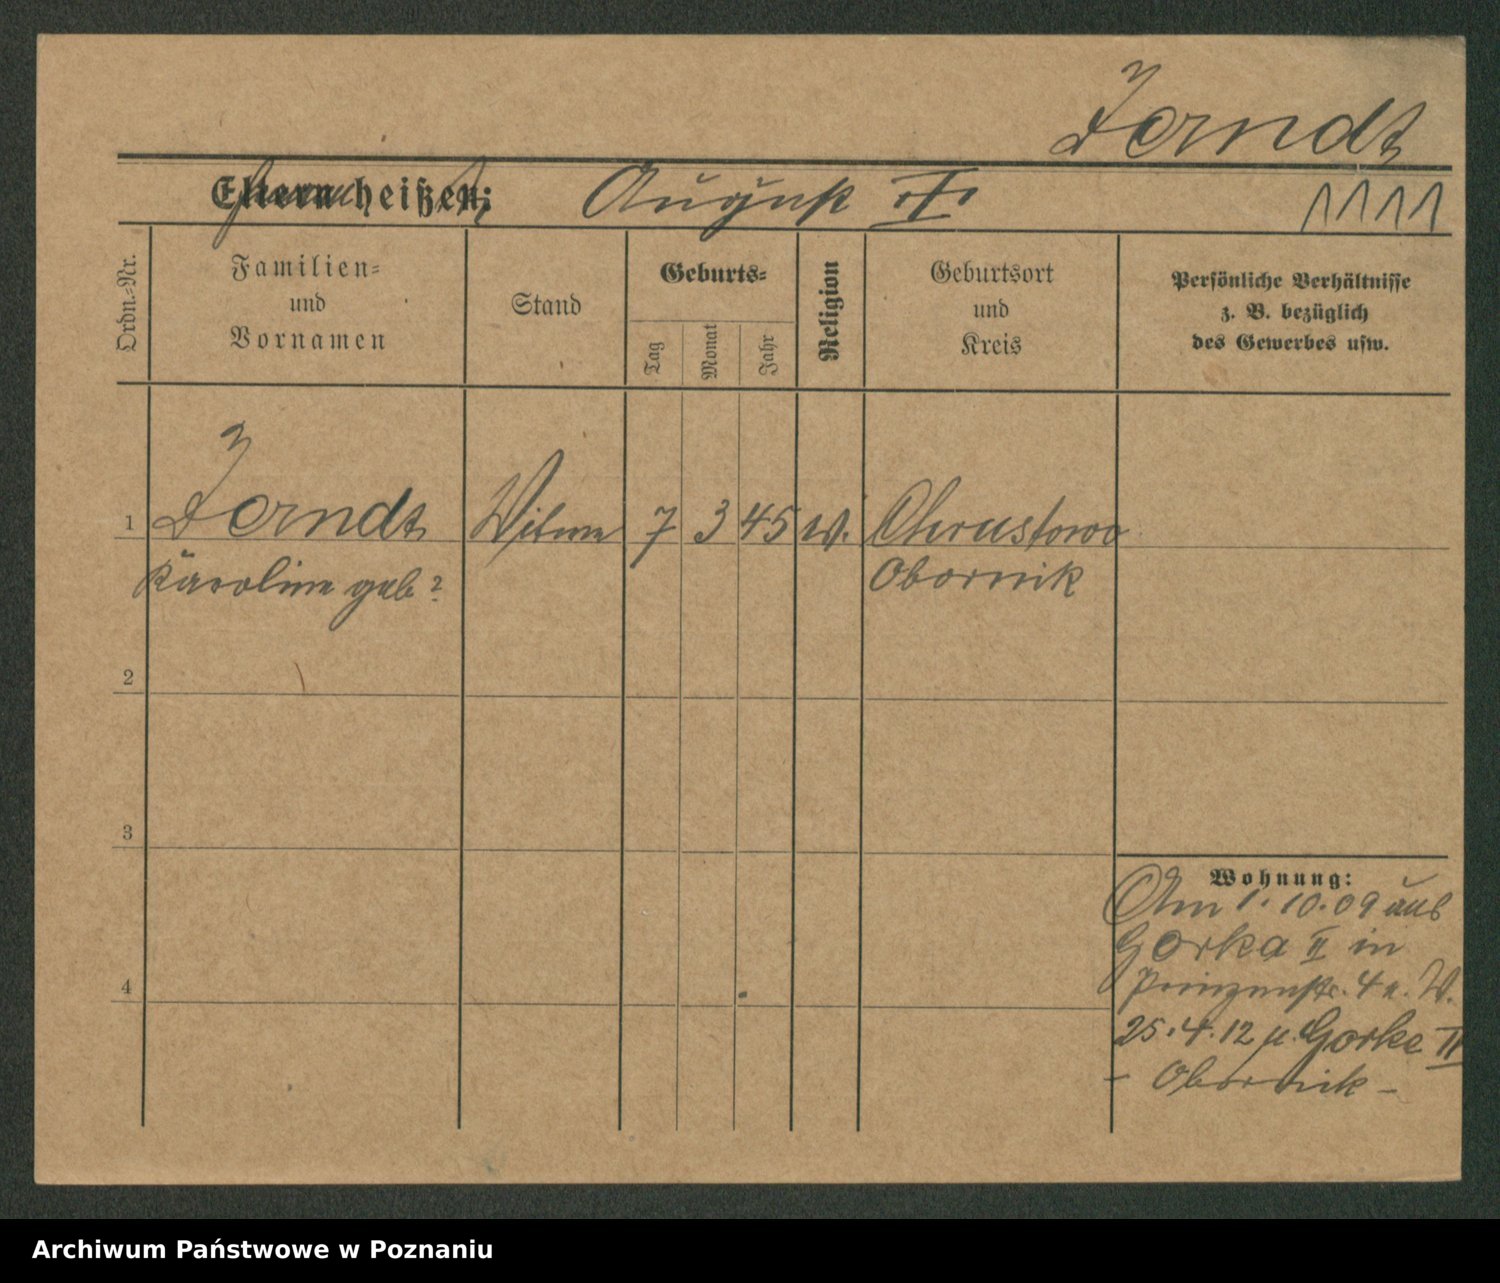 Zerndt
Eltern heißen: August II
1111
Ordn.-Nr.
Familien-
und
Vornamen
Stand
Geburts-
Tag
Monat
Jahr
Religion
Geburtsort
und
Kreis
Persönliche Verhältnisse
z. B. bezüglich
des Gewerbes usw.
1 Zerndt Witwe 7 3 45 Chrustowo
Karoline geb? Obornik
2
3
4
Wohnung:
Am 1.10.09 aus
Gorka II in
Prinzenstr. 4 a. W.
25.4.12 n. Gorka II
- Obornik -
Archiwum Państwowe w Poznaniu